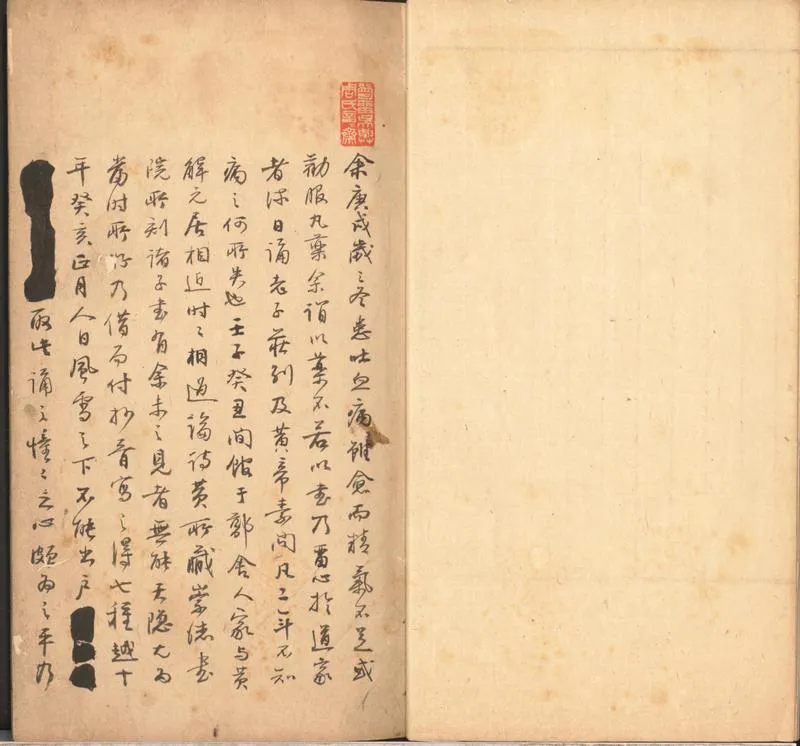 曾留吳興
周氏言言齋
余庚戌歲之冬患吐血病雖愈而精氣不足或
勸服丸藥余謂以藥不若以書乃畱心於道家
者流日誦老子莊列及黃帝素問凡二不知
病之何所失也壬子癸丑間館于郭舍人家与黃
解元居相近时〻相過論詩黃所藏崇德書
院所刻諸子書有余未之見者無能天隐尤为
當时所珍乃借而付抄胥寫之得七種越十
年癸亥正月人日風雪之下不能出户
取此誦之憧〻之心頗为之平乃